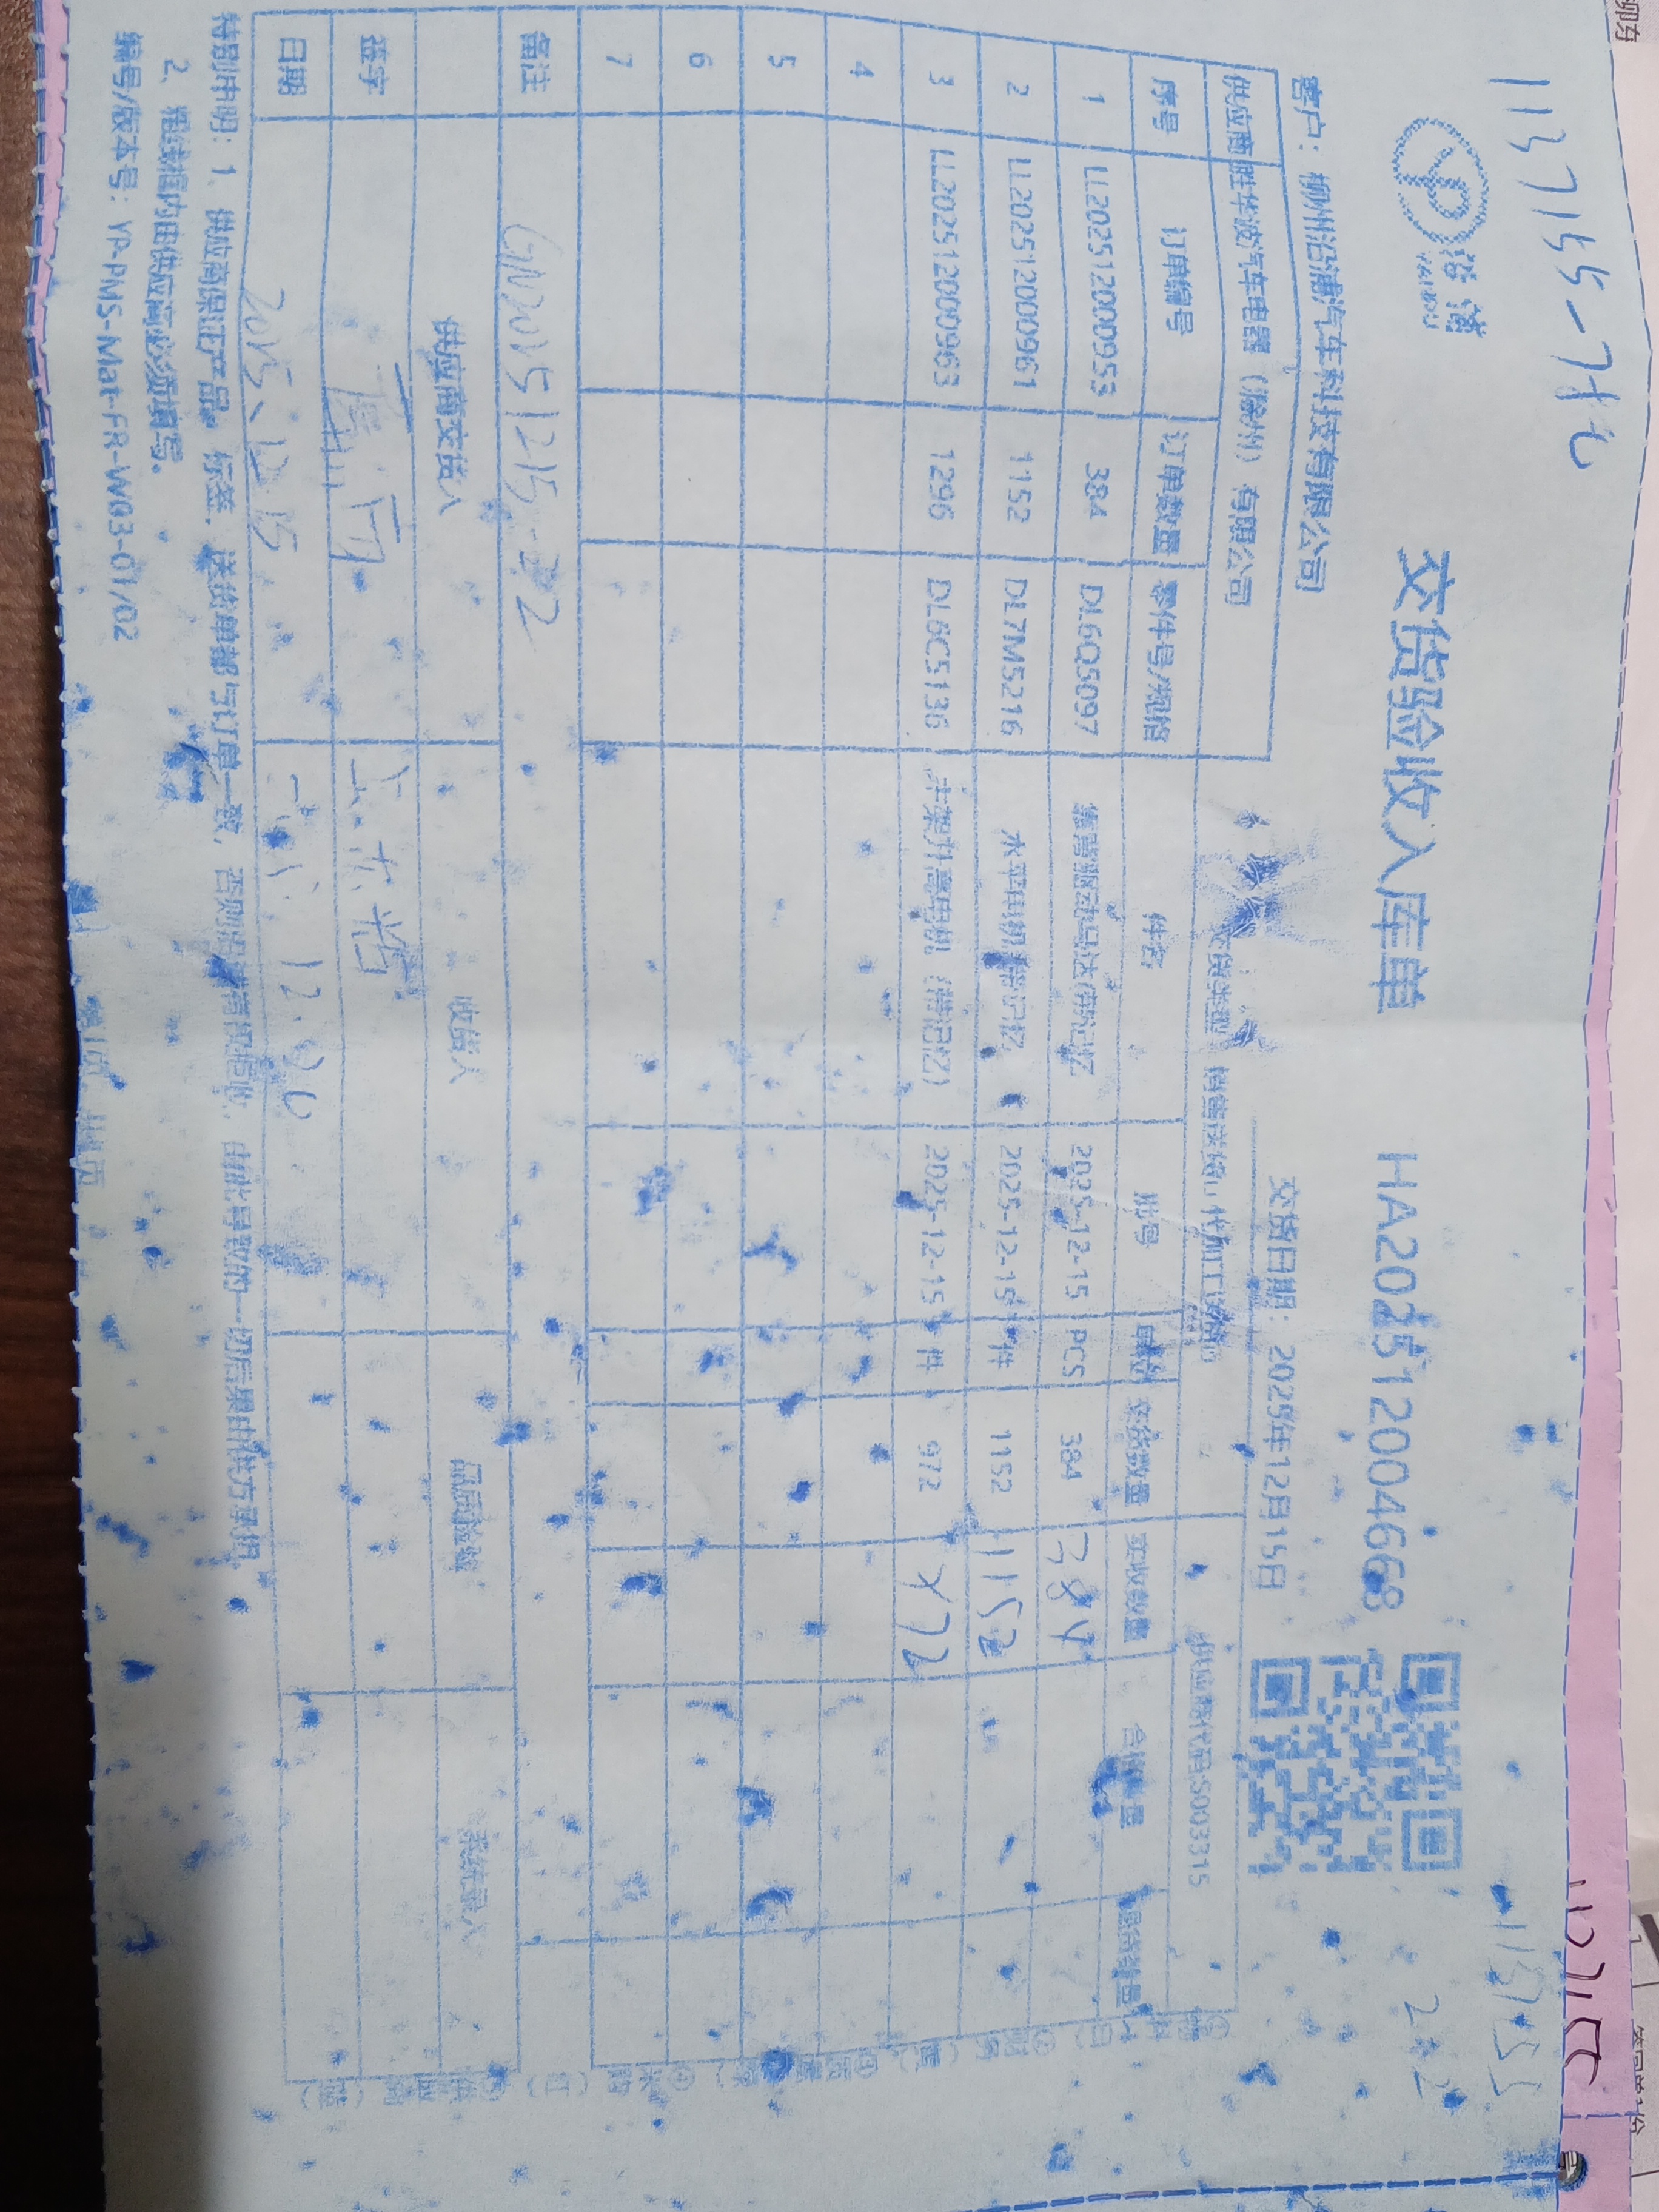 1137155-7件
沿浦
YANPU
交货验收入库单
HA202512004668
1137155
2.2
客户：柳州沿浦汽车科技有限公司
交货日期：2025年12月15日
供应商 胜华波汽车电器（滁州）有限公司
供应商代码:S003315
序号 订单编号 订单数量 零件号/规格 件名 批号 单位 交货数量 实收数量 合格数量 退货数量
1 LL202512000953 384 DL6Q5097 靠背驱动马达(带记忆 2025-12-15 PCS 384 384
2 LL202512000961 1152 DL7M5216 水平电机-带记忆 2025-12-15 件 1152 1152
3 LL202512000963 1296 DL6C5136 升高电机（带记忆） 2025-12-15 件 972 972
4
5
6
7
备注 GN20251215-22
供应商交货人 收货人 品质检验 系统录入
签字
日期 2025.12.15
特别申明：1、供应商保证产品、标签、送货单都与订单一致，否则沿浦有权拒收，由此导致的一切后果由供方承担。
2、粗线框内由供应商必须填写。
编号/版本号：YP-PMS-Mat-FR-W03-01/02
第1页，共1页